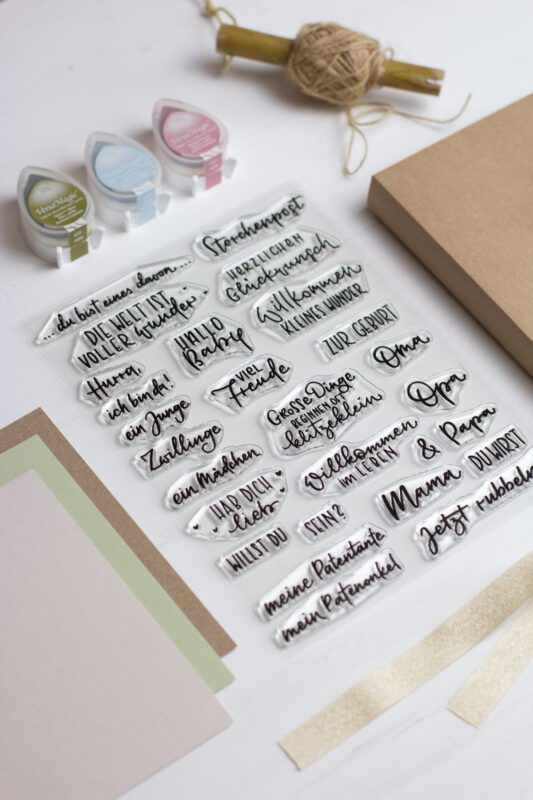 VersaMagic
VersaMagic
VersaMagic
Storchenpost
HERZLICHEN
Glückwunsch
...du bist einer davon...
DIE WELT IST
VOLLER Wunder
HALLO
Baby
Willkommen
KLEINES WUNDER
ZUR GEBURT
Hurra
ich bin da!
VIEL
Freude
Oma
ein Junge
GROSSE DINGE
BEGINNEN OFT
klitzeklein
Opa
Zwillinge
ein Mädchen
Willkommen
IM LEBEN
&
Papa
HAB DICH
lieb
Mama
DU WIRST
WILLST DU
SEIN?
Jetzt rubbeln
meine Patentante
mein Patenonkel